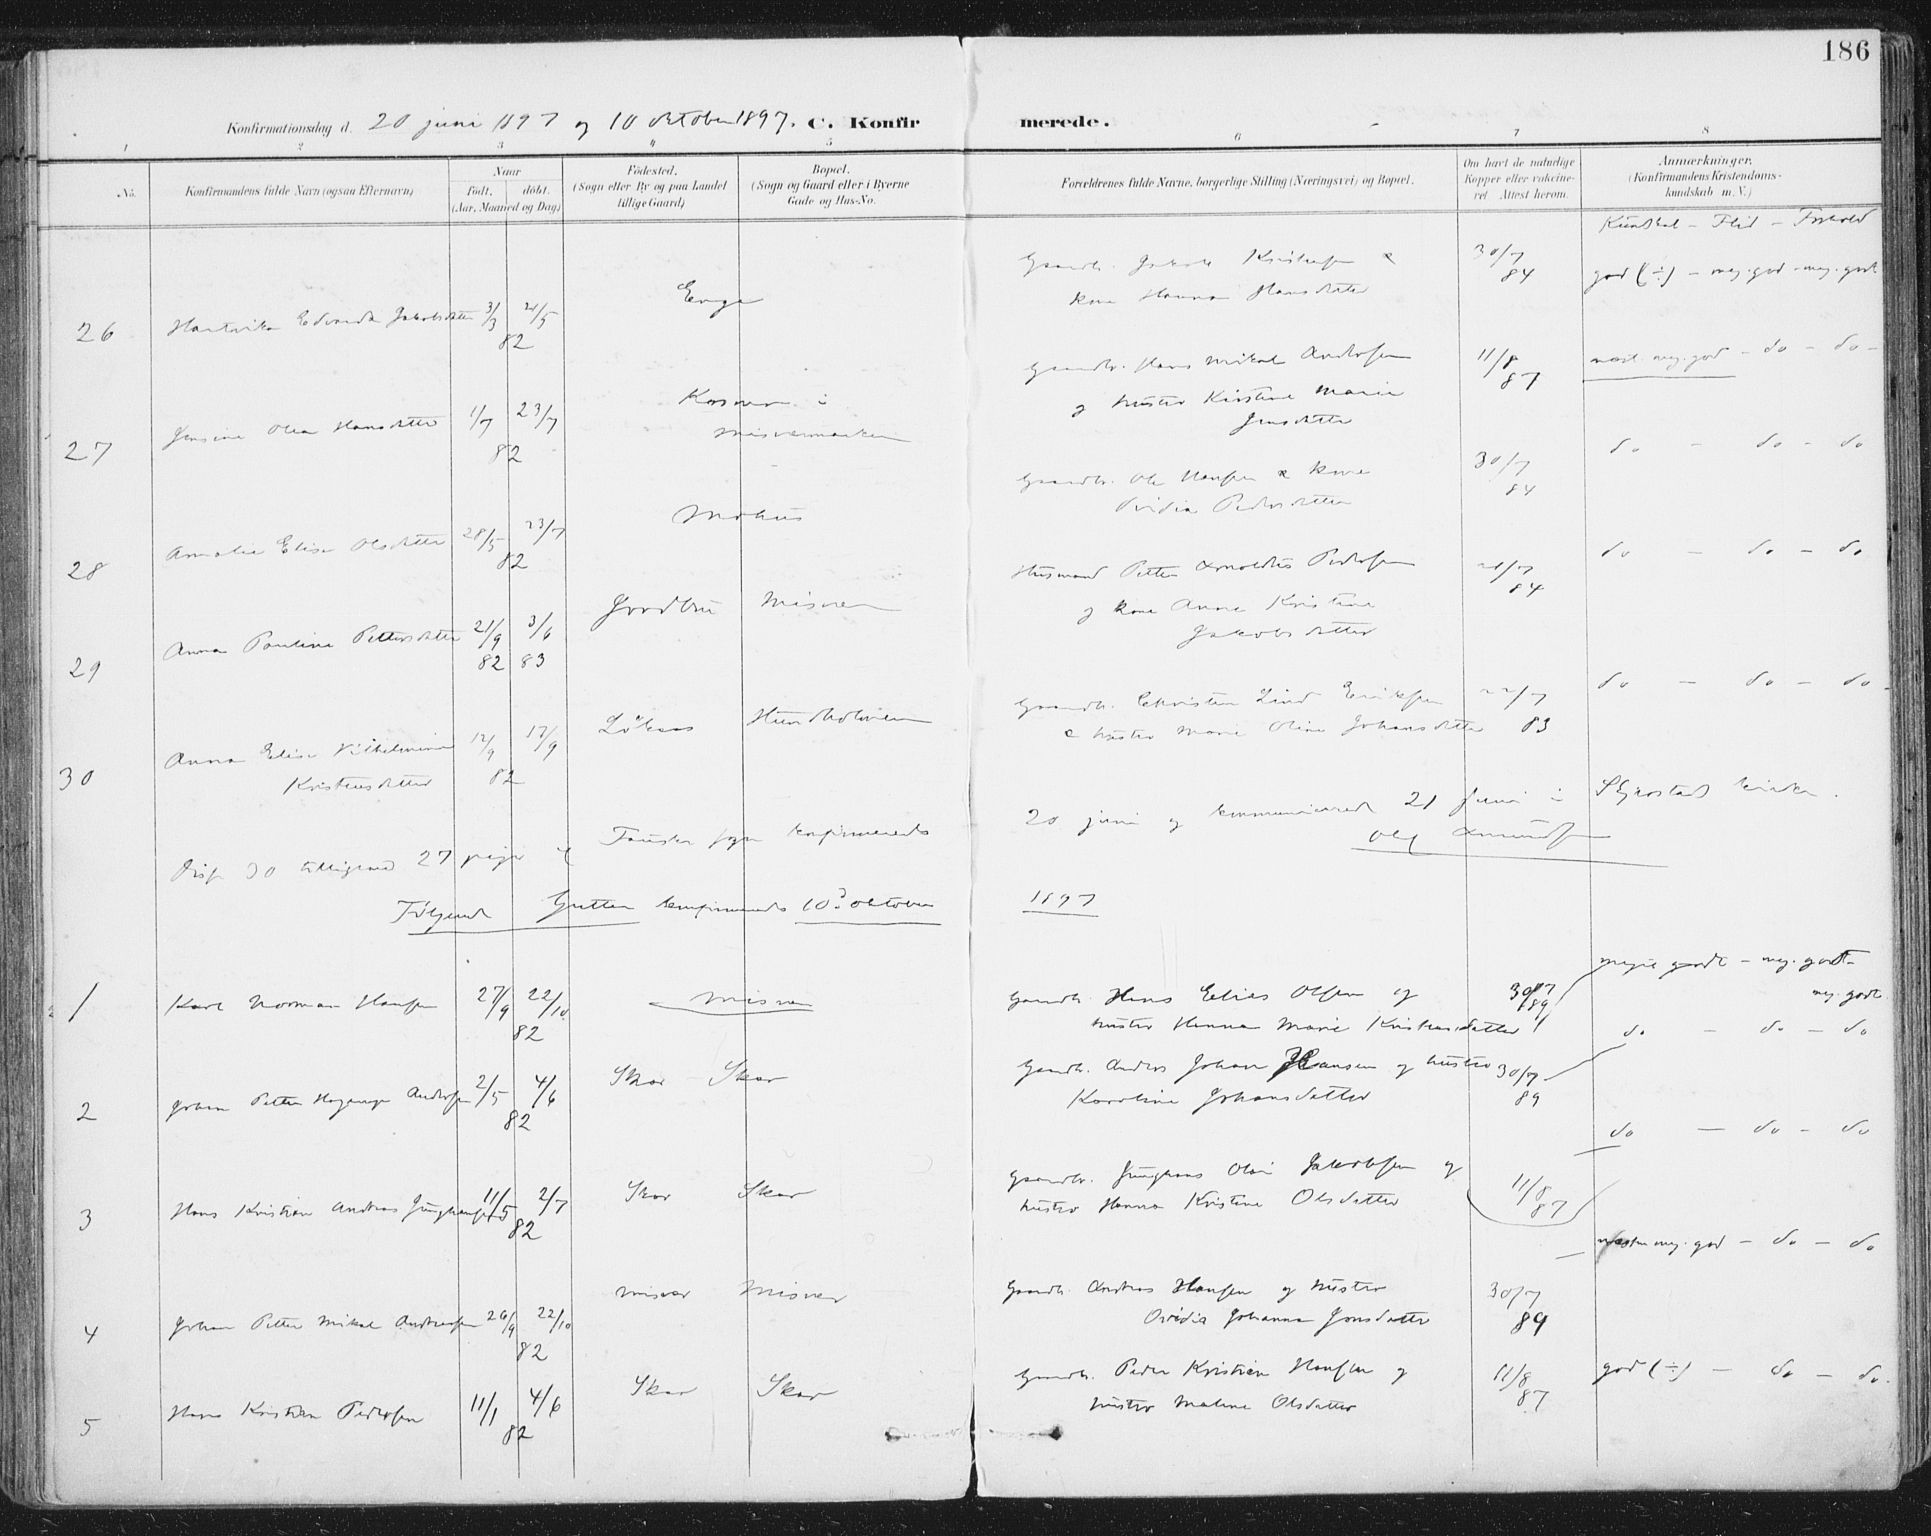 186
Konfirmationsdag d. 20 juni 1897 og 10 oktober 1897. C. Konfirmerede.
1 2 3 4 5 6 7 8
No.
Konfirmandens fulde Navn (ogsaa Efternavn)
Naar
født. døbt.
(Aar, Maaned og Dag)
Fødested.
(Sogn eller By og paa Landet
tillige Gaard)
Bopæl.
(Sogn og Gaard eller i Byerne
Gade og Hus-No.
Forældrenes fulde Navne, borgerlige Stilling (Næringsvei) og Bopæl.
Om havt de naturlige
Kopper eller vaccine-
ret Attest herom.
Anmærkninger.
(Konfirmandens Kristendoms-
kundskab m. V.)
Kundskab - Flid - Forhold
26 Edvarda Jakobsdatter 3/3 21/5 82 Enge
Gaardbr. Jakob Kristensen &
kone Hanna Hansdatter
30/7 84 god (÷) - meg. god - meg. godt
27 Jensine Olea Hansdatter 1/7 23/7 82
i
Misværmarken
Gaardbr. Hans Mikal Andersen
og hustru Kirstine Marie
Jensdatter
11/8 87 næst. meg. god - do - do -
28 Amalie Elise Olsdatter 28/5 23/7 82 Mohus
Gaardbr. Ole Hansen & kone
Ovidia Pedersdatter
30/7 84 do - do - do
29 Anna Pauline Pettersdatter 21/9 82 3/6 83 Jordbru Misvær
Husmand Petter Arnoldus Pedersen
og kone Anna Kristine
Jakobsdatter
84 do - do - do
30 Anna Elise Vilhelmine
Kristensdatter
12/9 17/9 82 Løkaas Hundholmen
Gaardbr. Christen Lind Eriksen
& hustru Marie Oline Johansdatter
22/7 83 do - do - do -
Disse 30 tilligemed 27 piger Fauske sogn konfirmeredes 20 juni og kommunicerede 21 juni i Skjerstad kirke.
Olaf Amundsen
Følgende Gutter konfirmeredes 10de oktober 1897
1 Karl Norman Hansen 27/9 22/10 82 Misvær
Gaardb. Hans Elias Olsen og
hustru Hanna Marie Kristensdatter
30/7 89 meget godt - meg. godt -
meg. godt
2 Johan Petter Andersen 2/5 4/6 82 Skar Skar
Gaardb. Anders Johan Hansen og hustru
Karoline Johansdatter
30/7 89 do - do - do
3 Hans Kristian Andreas Junghansen 11/5 2/7 82 Skar Skar
Gaardbr. Junghans Olai Jakobsen og
hustru Hanna Kristine Olsdatter
11/8 87 do - do - do
4 Johan Petter Mikal Andreassen 26/9 22/10 82 Misvær Misvær
Gaardb. Andreas Hansen og hustru
Ovidia Johanna Jonsdatter
30/7 89 næsten meg. god - do - do
5 Hans Kristian Pedersen 11/1 4/6 82 Skar Skar
Gaardb. Peder Kristian Hansen og
hustru Malene Olsdatter
11/8 87 god (÷) - do - do.